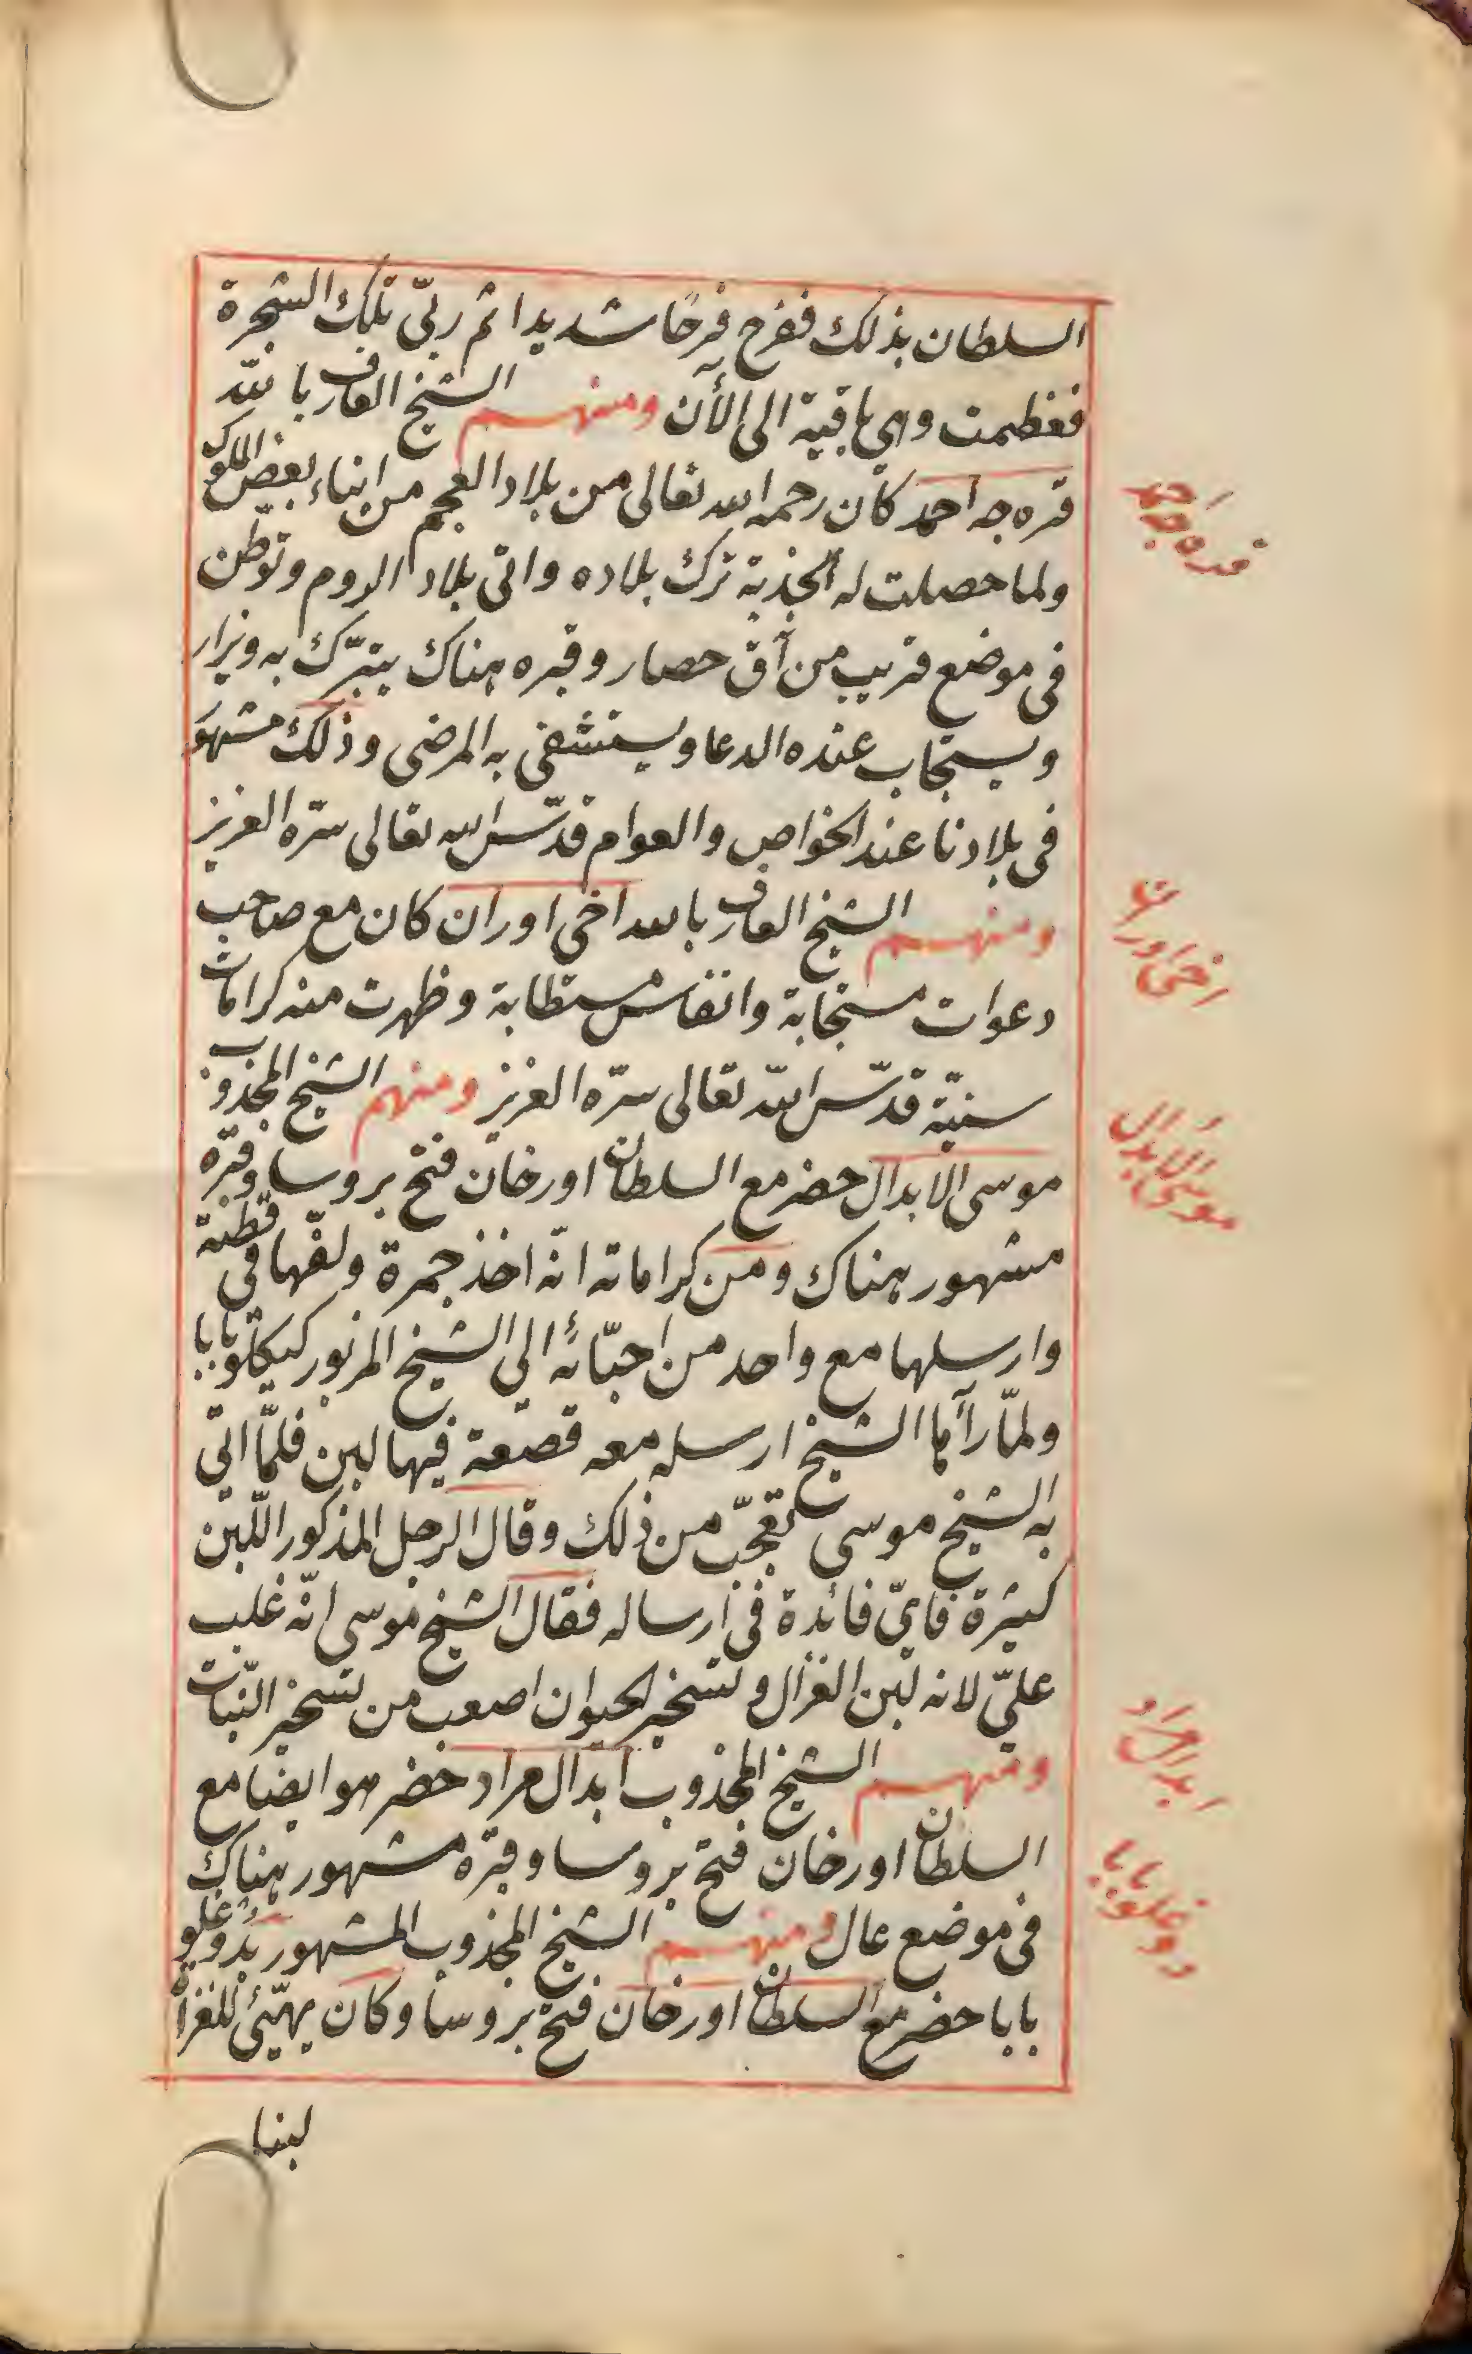 السلطان بذلك ففرح به فرحًا شديدا ثم ربّى تلك الشجرة
فعظمت وهي باقية الى الأن ومنهم الشيخ العارف بالله
قره جه احمد كان رحمه الله تعالى من بلاد العجم من ابناء بعض الملوك
ولما حصلت له الجذبة ترك بلاده واتى بلاد الروم وتوطّن
فى موضع قريب من آق حصار وقبره هناك يتبرّك به ويزار
ويستجاب عنده الدعا ويستشفى به المرضى وذلك مشهور
فى بلادنا عند الخواص والعوام قدّس الله تعالى سرّه العزيز
ومنهم الشيخ العارف بالله اخى اوران كان مع صاحب
دعوات مستجابة وانفاس مستطابة وظهرت منه كرامات
سنيّة قدّس الله تعالى سرّه العزيز ومنهم الشيخ المجذوب
موسى الابدال حضر مع السلطان اورخان فتح بروسا وقبره
مشهور هناك ومن كراماته انّه اخذ جمرة ولفّها فى قطنة
وارسلها مع واحد من احبّائه الى الشيخ المزبور كيكلو بابا
ولمّا رآها الشيخ ارسل معه قصعة فيها لبن فلمّا اتى
به الشيخ موسى تعجّب من ذلك وقال الرجل المذكور اللّبن
كثيرة فاىّ فائدة فى ارساله فقال الشيخ موسى انّه غلب
علىّ لانه لبن الغزال وتسخير الحيوان اصعب من تسخير النّبات
ومنهم الشيخ المجذوب ابدال مراد حضر هو ايضا مع
السلطان اورخان فتح بروسا وقبره مشهور هناك
فى موضع عال ومنهم الشيخ المجذوب المشهور بدوغلو
بابا حضر مع السلطان اورخان فتح بروسا وكان يهيّئ للغزاة
لبنا
قره جه احمد
اخى اوران
موسى الابدال
ابدال مراد
دوغلو بابا